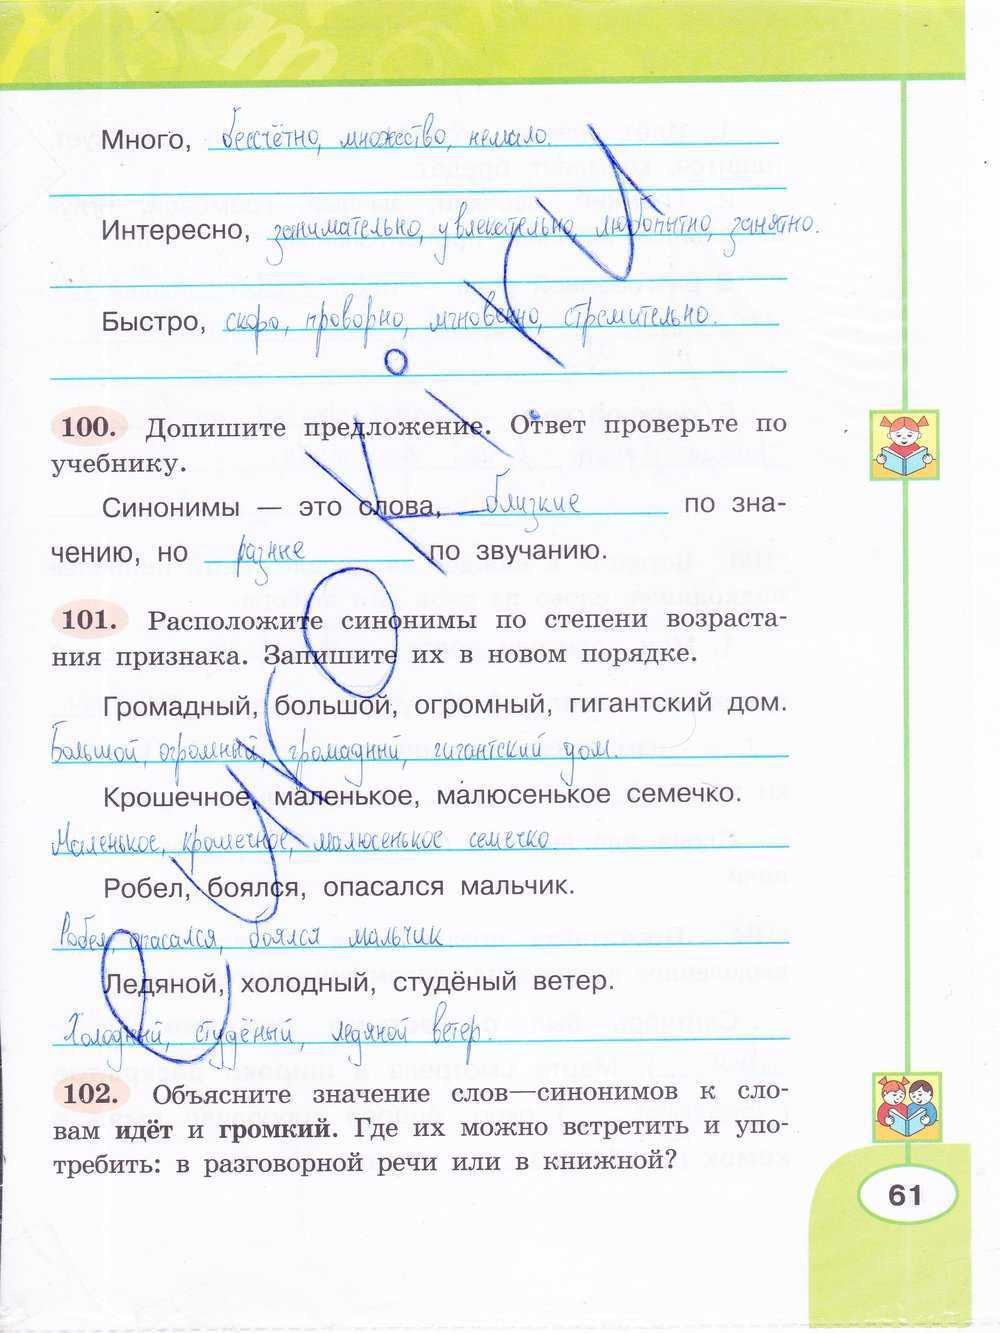 Много, бессчётно, множество, немало.
Интересно, занимательно, увлекательно, любопытно, занятно.
Быстро, скоро, проворно, мгновенно, стремительно.
100. Допишите предложение. Ответ проверьте по
учебнику.
Синонимы — это слова, близкие по зна-
чению, но разные по звучанию.
101. Расположите синонимы по степени возраста-
ния признака. Запишите их в новом порядке.
Громадный, большой, огромный, гигантский дом.
Большой, огромный, громадный, гигантский дом.
Крошечное, маленькое, малюсенькое семечко.
Маленькое, крошечное, малюсенькое семечко.
Робел, боялся, опасался мальчик.
Робел, опасался, боялся мальчик
Ледяной, холодный, студёный ветер.
Холодный, студёный, ледяной ветер.
102. Объясните значение слов—синонимов к сло-
вам идёт и громкий. Где их можно встретить и упо-
требить: в разговорной речи или в книжной?
61